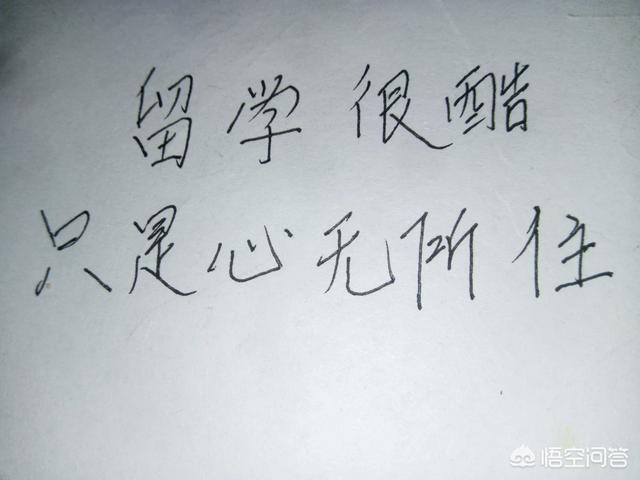 留学很酷
只是心无所住
悟空问答